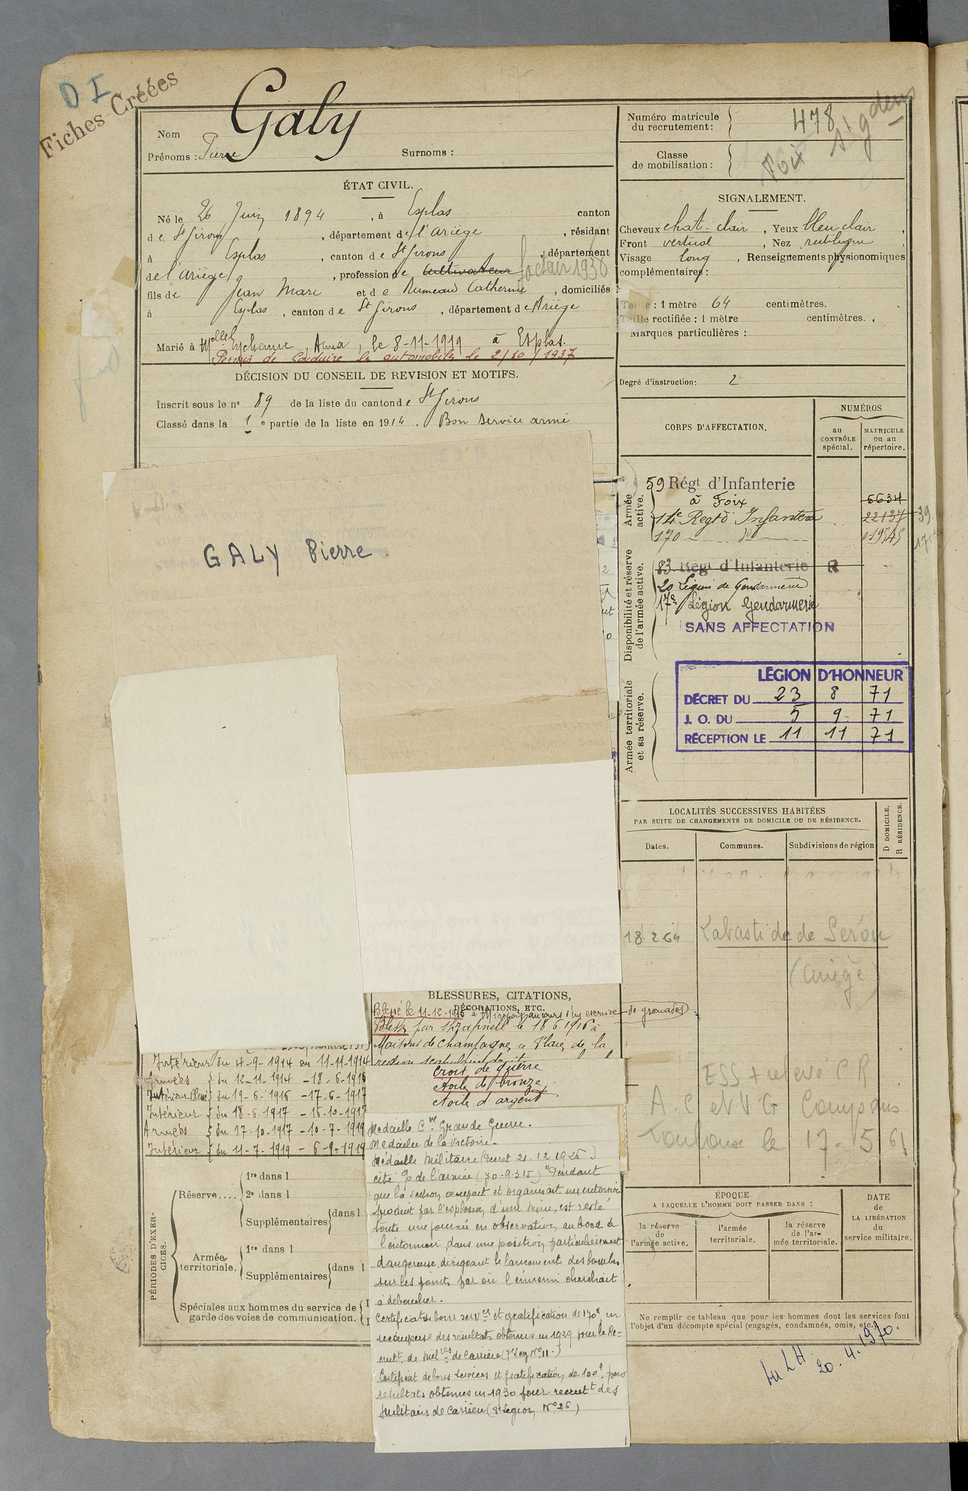 D I
Fiches Créées
Nom Galy
Prénoms : Pierre Surnoms :
Numéro matricule du recrutement : 478
Classe de mobilisation :
Foix
ÉTAT CIVIL.
Né le 26 Juin 1894, à Esplas canton
de St Girons, département de l'Ariège, résidant
à Esplas, canton de St Girons, département
de l'Ariège, profession de cultivateur facteur 1930
fils de Jean Marc et de Rumeau Catherine, domiciliés
à Esplas, canton de St Girons, département de Ariège
Marié à Melle Anna, le 8-11-1919 à Esplas.
Permis de conduire les automobiles le 2/10/1937
DÉCISION DU CONSEIL DE REVISION ET MOTIFS.
Inscrit sous le no 89 de la liste du canton de St Girons
Classé dans la 1e partie de la liste en 1914. Bon service armé
SIGNALEMENT.
Cheveux chat. clair, Yeux bleu clair,
Front vertical, Nez rectiligne
Visage long, Renseignements physionomiques
complémentaires :
Taille : 1 mètre 64 centimètres.
Taille rectifiée : 1 mètre centimètres.
Marques particulières :
Degré d'instruction : 2
CORPS D'AFFECTATION.
NUMÉROS
au CONTRÔLE spécial.
MATRICULE ou au répertoire.
Armée active.
59 Régt d'Infanterie
à Foix
6634
14e Regt d'Infanterie 22137
170 d°
Disponibilité et réserve de l'armée active.
83 Régt d'Infanterie R
20 Légion de Gendarmerie
17e Légion Gendarmerie
SANS AFFECTATION
Armée territoriale et sa réserve.
LÉGION D'HONNEUR
DÉCRET DU 23 8 71
J. O. DU 5 9 71
RÉCEPTION LE 11 11 71
GALY Pierre
LOCALITÉS SUCCESSIVES HABITÉES
PAR SUITE DE CHANGEMENTS DE DOMICILE OU DE RÉSIDENCE.
Dates. Communes. Subdivisions de région
D DOMICILE.
R RÉSIDENCE.
18.2.64 Labastide de Sérou
(Ariège)
ESS + relevé C R
A.C et V G Campagnes
Toulouse le 17-5-61
BLESSURES, CITATIONS,
DÉCORATIONS, ETC.
Blessé le 11-10-1916 à Mirepoix au cours d'un exercice de grenades.
Blessé par shrapnell le 18 6 1916 à
Maisons de Champagne, Plaie de la
Croix de guerre
étoile de bronze
étoile d'argent
Médaille Cve Grande Guerre.
Médaille de la Victoire.
Médaille Militaire (Décret 21.12.1925)
cité de l'armée "Pendant
que la section occupait et organisait un entonnoir
produit par l'explosion d'une mine, est resté
toute une journée en observation au bord de
l'entonnoir, dans une position particulièrement
dangereuse, dirigeant le lancement des bombes
sur les points par où l'ennemi cherchait
à déboucher.
Certificat de bons services et gratification de 170f en
récompense des résultats obtenus en 1929 pour le Re-
crutt de milres de carrière
Certificat de bons services et gratification de 100f pour
résultats obtenus en 1930 pour recrutt des
militaires de carrière (Légion No 26)
Intérieur du 4-9-1914 au 11-11-1914
Armées du 12-11-1914 - 18-6-1916
Intérieur Blessé du 19-6-1916 - 17-6-1917
Intérieur du 18-6-1917 - 16-10-1917
Armées du 17-10-1917 - 10-7-1919
Intérieur du 11-7-1919 - 6-9-1919
PÉRIODES D'EXERCICES.
Réserve....
1re dans l
2e dans l
Supplémentaires dans l
Armée territoriale.
1re dans l
Supplémentaires dans l
Spéciales aux hommes du service de
garde des voies de communication.
ÉPOQUE
A LAQUELLE L'HOMME DOIT PASSER DANS :
la réserve de l'armée active.
l'armée territoriale.
la réserve de l'armée territoriale.
DATE DE LA LIBÉRATION du service militaire.
Ne remplir ce tableau que pour les hommes dont les services font
l'objet d'un décompte spécial (engagés, condamnés, omis, etc.)
LH 20.4.1970.